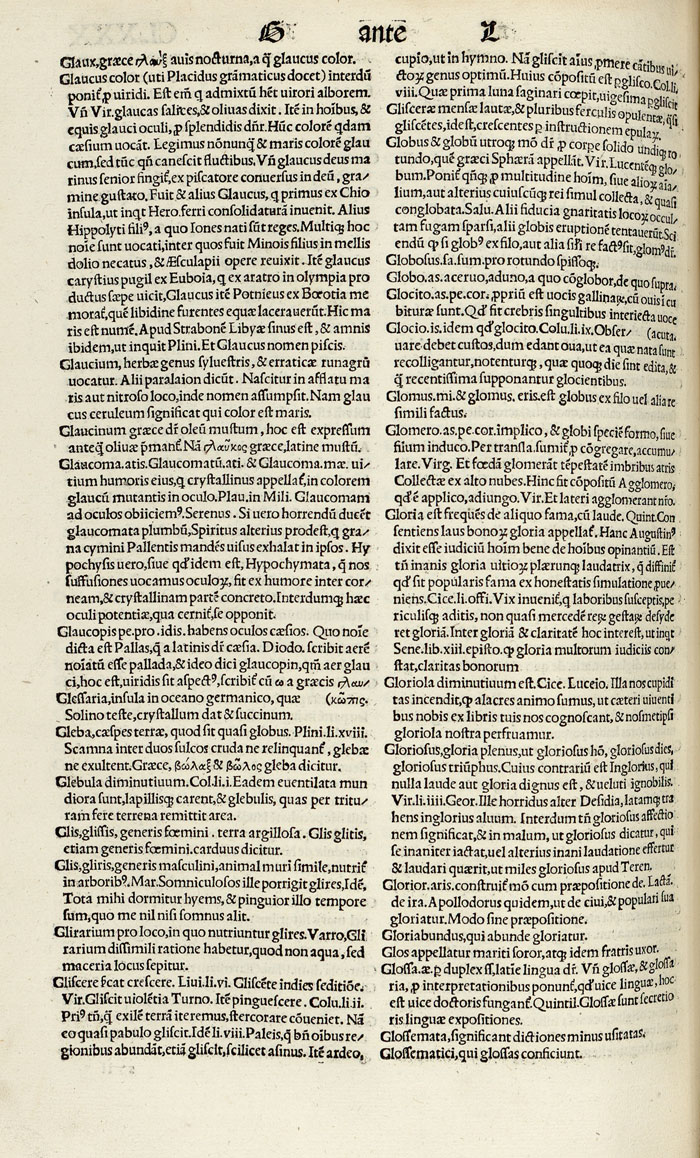 G ante L
Glaux, græce γλαὺξ auis nocturna, a q̃ glaucus color.
Glaucus color (uti Placidus grãmaticus docet) interdũ
ponit̃, ꝓ uiridi. Est em̃ q admixtũ hẽt uirori alborem.
Vñ Vir. glaucas salices, & oliuas dixit. Itẽ in hoĩbus, &
equis glauci oculi, ꝓ splendidis dñr. Hũc colorẽ qdam
cæsium uocãt. Legimus nõnunq̃ & maris colorẽ glau
cum, sed tũc qñ canescit fluctibus. Vñ Glaucus deus ma
rinus senior fingit̃, ex piscatore conuersus in deũ, gra/
mine gustato. Fuit & alius Glaucus, q primus ex Chio
insula, ut inqt Hero. ferri consolidaturã inuenit. Alius
Hippolyti fili⁹, a quo Iones nati sũt reges. Multiqꝫ hoc
noĩe sunt uocati, inter quos fuit Minois filius in mellis
dolio necatus, & Æsculapii opere reuixit. Itẽ glaucus
carystius pugil ex Euboia, q ex aratro in olympia pro
ductus sæpe uicit, Glaucus itẽ Potnieus ex Bœotia me
morat̃, quẽ libidine furentes equæ lacerauerũt. Hic ma
ris est numẽ. Apud Strabonẽ Libyæ sinus est, & amnis
ibidem, ut inquit Plini. Et Glaucus nomen piscis.
Glaucium, herbæ genus syluestris, & erraticæ runagrũ
uocatur. Alii paralaion dicũt. Nascitur in afflatu ma
ris aut nitroso loco, inde nomen assumpsit. Nam glau
cus ceruleum significat qui color est maris.
Glaucinum græce dr̃ oleũ mustum, hoc est expressum
anteq̃ oliuæ p̃mant̃. Nã γλαῦκος græce, latine mustũ.
Glaucoma. atis. Glaucomatũ. ati. & Glaucoma. mæ. ui/
tium humoris eius, q crystallinus appellat̃, in colorem
glaucũ mutantis in oculo. Plau. in Mili. Glaucomam
ad oculos obiiciem⁹. Serenus. Si uero horrendũ ducẽt
glaucomata plumbũ, Spiritus alterius prodest, q gra/
na cymini Pallentis mandẽs uisus exhalat in ipsos. Hy
pochysis uero, siue qd' idem est, Hypochymata, q̃ nos
suffusiones uocamus oculoꝝ, fit ex humore inter cor/
neam, & crystallinam partẽ concreto. Interdumqꝫ hæc
oculi potentiæ, qua cernit̃, se opponit.
Glaucopis pe. pro. idis. habens oculos cæsios. Quo noĩe
dicta est Pallas, q̃ a latinis dr̃ cæsia. Diodo. scribit aerẽ
noĩatũ esse pallada, & ideo dici glaucopin, qm̃ aer glau
ci, hoc est, uiridis sit aspect⁹, scribit̃ cũ ω a græcis γλαυ/
Glessaria, insula in oceano germanico, quæ (κῶπις.
Solino teste, crystallum dat & succinum.
Gleba, cæspes terræ, quod sit quasi globus. Plini. li. xviii.
Scamna inter duos sulcos cruda ne relinquant̃, glebæ
ne exultent. Græce, βώλαξ & βῶλος gleba dicitur.
Glebula diminutiuum. Col. li. i. Eadem euentilata mun
diora sunt, lapillisqꝫ carent, & glebulis, quas per tritu/
ram fere terrena remittit area.
Glis, glissis, generis fœmini. terra argillosa. Glis glitis,
etiam generis fœmini. carduus dicitur.
Glis, gliris, generis masculini, animal muri simile, nutrit̃
in arborib⁹. Mar. Somniculosos ille porrigit glires, Idẽ,
Tota mihi dormitur hyems, & pinguior illo tempore
sum, quo me nil nisi somnus alit.
Glirarium pro loco, in quo nutriuntur glires. Varro, Gli
rarium dissimili ratione habetur, quod non aqua, sed
maceria locus sepitur.
Gliscere s̃cat crescere. Liui. li. vi. Gliscẽte indies seditiõe.
Vir. Gliscit uiolẽtia Turno. Itẽ pinguescere. Colu. li. ii.
Pri⁹ tñ, q̃ exilẽ terrã iteremus, stercorare cõueniet. Nã
eo quasi pabulo gliscit. Idẽ li. viii. Paleis, q̃ bñ oibus re/
gionibus abundãt, etiã gliscit, scilicet asinus. Itẽ ardeo,
cupio, ut in hymno. Nã gliscit aĩus, ꝓmere cãtibus ui/
ctoꝝ genus optimũ. Huius cõpositũ est ꝓglisco. Col. li.
viii. Quæ prima luna saginari cœpit, uigesima ꝓgliscit
Glisceræ mensæ lautæ, & pluribus ferculis opulentæ, q̃si
gliscẽtes, idest, crescentes ꝑ instructionem epulaꝝ.
Globus & globũ utroqꝫ mõ dr̃ ꝓ corpe solido undiqꝫ ro
tundo, quẽ græci Sphærã appellãt. Vir. Lucentẽqꝫ glo/
bum. Ponit̃ qñqꝫ ꝓ multitudine hoĩm, siue alioꝝ aĩa/
lium, aut alterius cuiuscũqꝫ rei simul collecta, & quasi
conglobata. Salu. Alii fiducia gnaritatis locoꝝ occul/
tam fugam sparsi, alii globis eruptionẽ tentauerũt. Sci
endũ q si glob⁹ ex filo, aut alia sil̃i re fact⁹ sit, glom⁹ dr̃.
Globosus. sa. sum. pro rotundo spissoqꝫ.
Globo. as. aceruo, aduno, a quo cõglobor, de quo supra.
Glocito. as. pe. cor. ꝓpriũ est uocis gallinaꝝ, cũ ouis icu
bituræ sunt. Qd' fit crebris singultibus interiecta uoce
Glocio. is. idem qd' glocito. Colu. li. ix. Obser/ (acuta.
uare debet custos, dum edant oua, ut ea quæ nata sunt
recolligantur, notenturqꝫ, quæ quoqꝫ die sint edita, &
q̃ recentissima supponantur glocientibus.
Glomus. mi. & glomus, eris. est globus ex filo uel alia re
simili factus.
Glomero. as. pe. cor. implico, & globi speciẽ formo, siue
filium induco. Per transla. sumit̃ ꝓ cõgregare, accumu/
lare. Virg. Et fœdã glomerãt tẽpestatẽ imbribus atris
Collectæ ex alto nubes. Hinc fit cõpositũ Agglomero,
qd' ẽ applico, adiungo. Vir. Et lateri agglomerant nr̃o.
Gloria est frequẽs de aliquo fama, cũ laude. Quint. Con
sentiens laus bonoꝝ gloria appellat̃. Hanc Augustin⁹
dixit esse iudiciũ hoĩm bene de hoĩbus opinantiũ. Est
tñ inanis gloria uitioꝝ plærunqꝫ laudatrix, q̃ diffinit̃
qd' sit popularis fama ex honestatis simulatione, ꝓue/
niens. Cice. li. offi. Vix inuenit̃, q laboribus susceptis, pe
riculisqꝫ aditis, non quasi mercedẽ reꝝ gestaꝝ desyde
ret gloriã. Inter gloriã & claritatẽ hoc interest, ut inqt
Sene. lib. xiii. episto. q̃ gloria multorum iudiciis con/
stat, claritas bonorum
Gloriola diminutiuum est. Cice. Luceio. Illa nos cupidi
tas incendit, q̃ alacres animo sumus, ut cæteri uiuenti
bus nobis ex libris tuis nos cognoscant, & nosmetipsi
gloriola nostra perfruamur.
Gloriosus, gloria plenus, ut gloriosus hõ, gloriosus dies,
gloriosus triũphus. Cuius contrariũ est Inglorius, qui
nulla laude aut gloria dignus est, & ueluti ignobilis.
Vir. li. iiii. Geor. Ille horridus alter Desidia, latamqꝫ tra
hens inglorius aluum. Interdum tñ gloriosus affectio
nem significat, & in malum, ut gloriosus dicatur, qui
se inaniter iactat, uel alterius inani laudatione effertur
& laudari quærit, ut miles gloriosus apud Teren.
Glorior. aris. construit̃ mõ cum præpositione de. Lactã.
de ira. Apollodorus quidem, ut de ciui, & populari sua
gloriatur. Modo sine præpositione.
Gloriabundus, qui abunde gloriatur.
Glos appellatur mariti soror, atqꝫ idem fratris uxor.
Glossa. æ. ꝑ duplex ss, latie lingua dr̃. Vñ glossæ, & glossa
ria, ꝓ interpretationibus ponunt̃, qd' uice linguæ, hoc
est uice doctoris fungant̃. Quintil. Glossæ sunt secretio
ris linguæ expositiones.
Glossemata, significant dictiones minus usitatas.
Glossematici, qui glossas conficiunt.